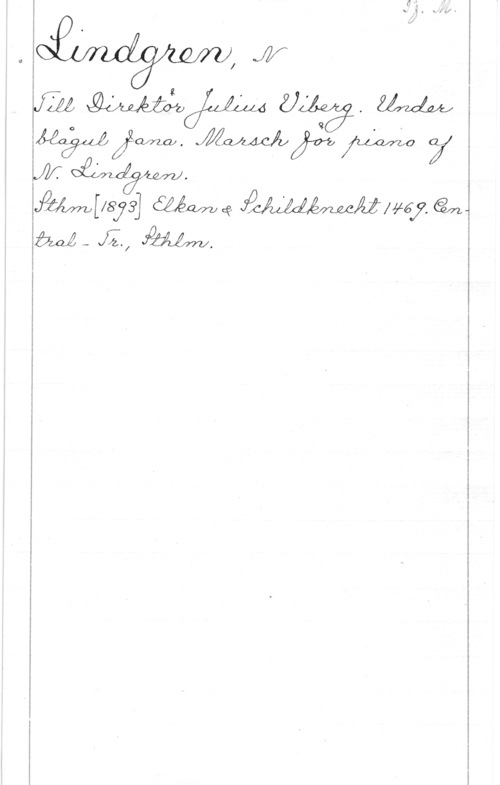 Lindgren, N
Till Direktör Julius Viberg. Under
blågul fana. Marsch för piano af
N. Lindgren.
Sthm [1893] Elkan & Schildknecht 1469. Cen-
tral-Tr., Sthlm.